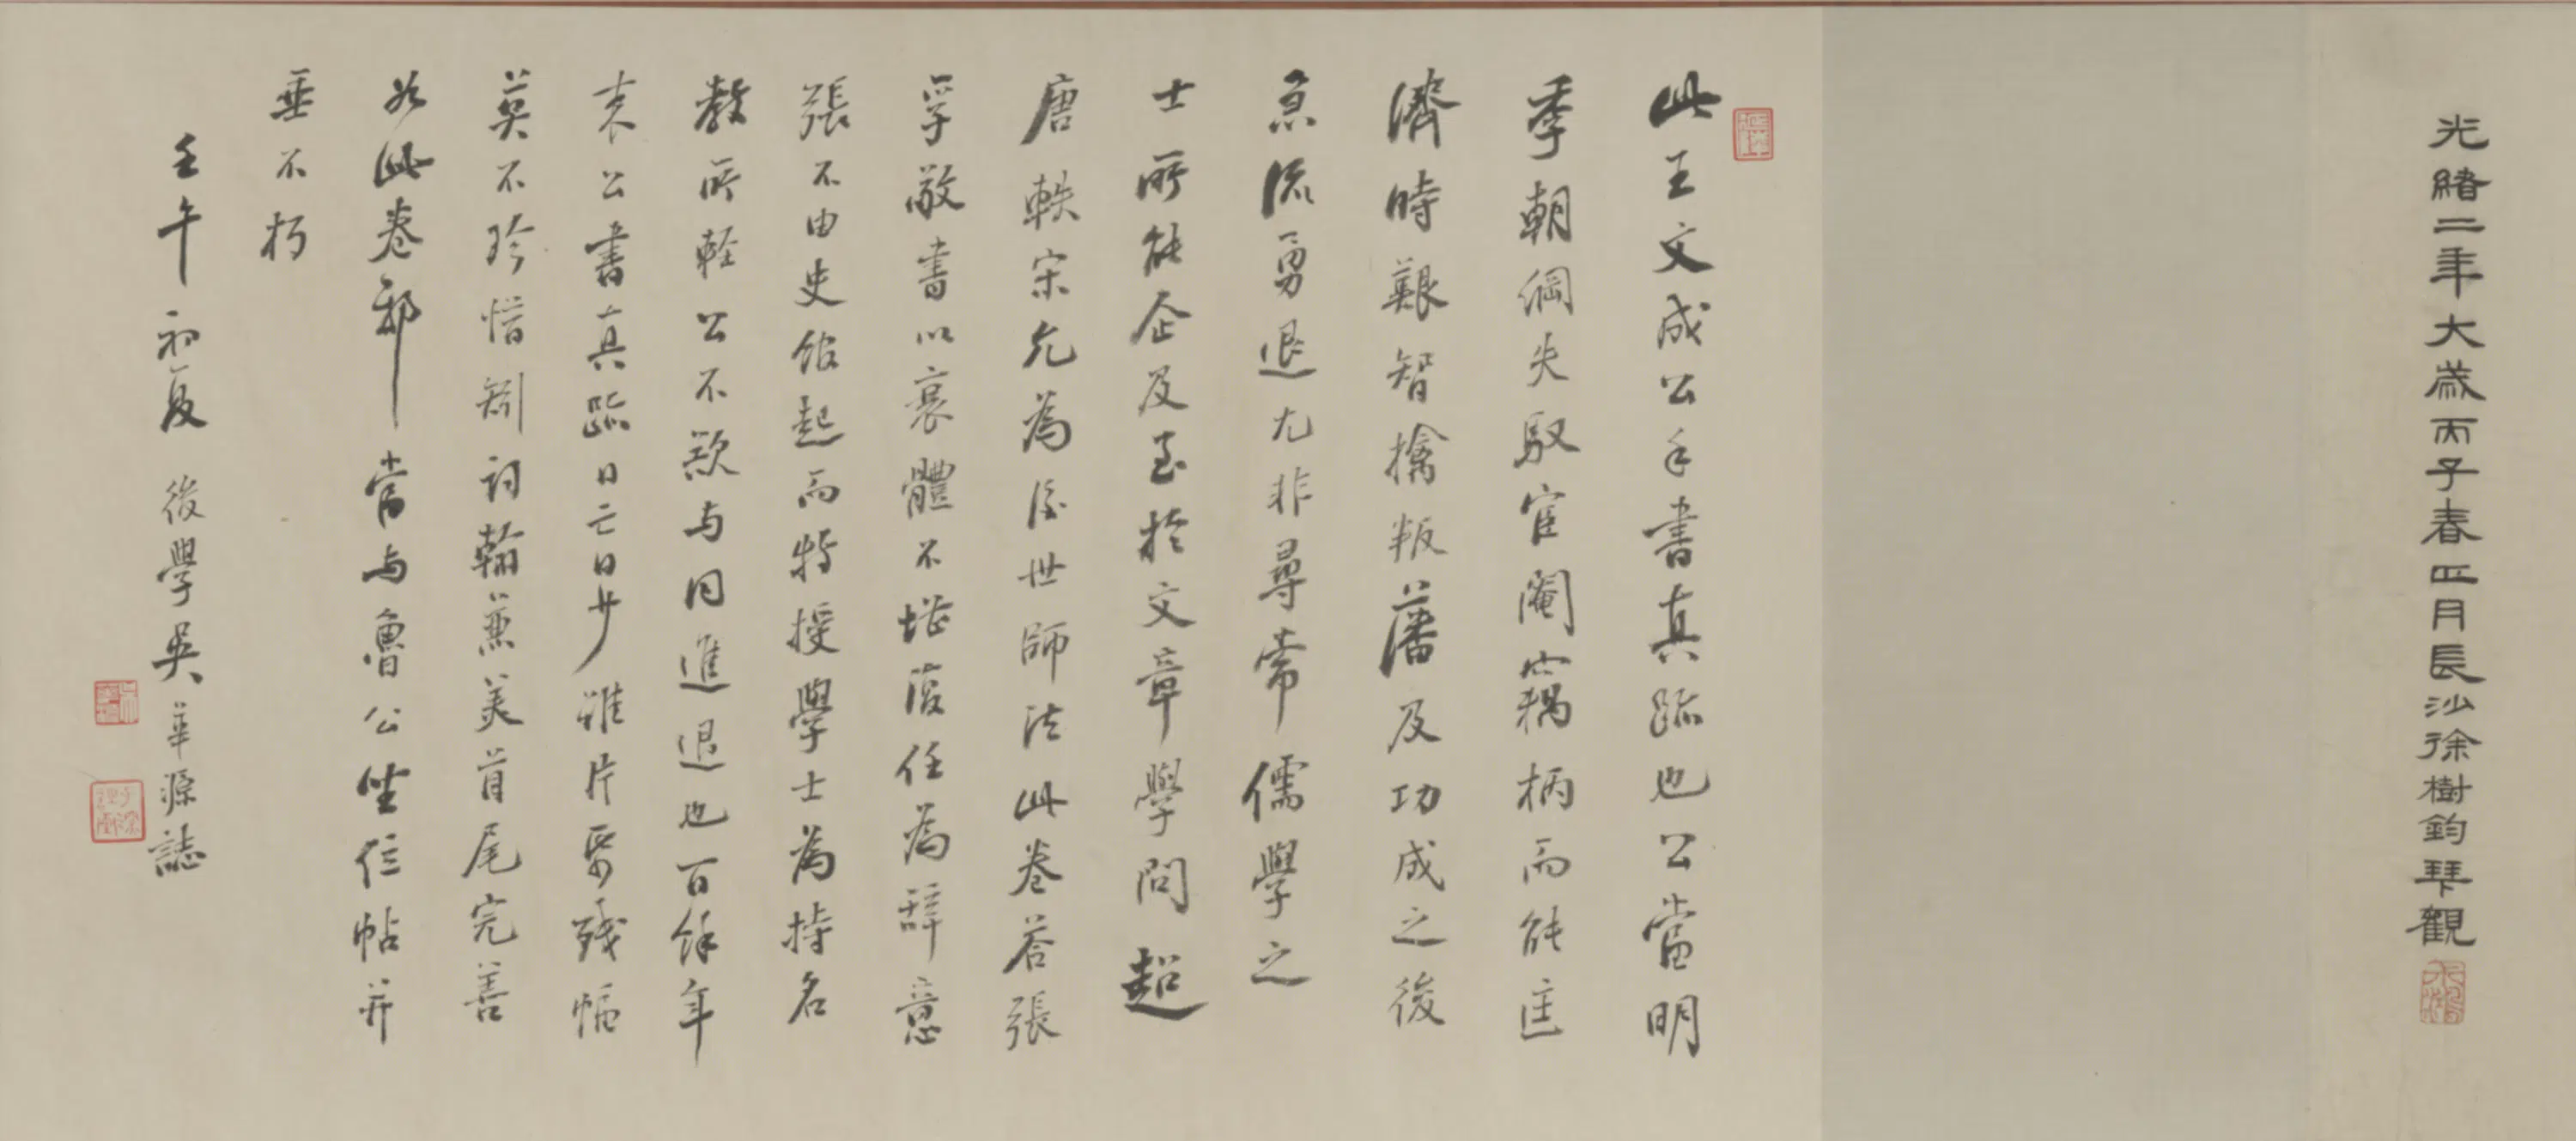 光緒二年大歲丙子春四月長沙徐樹鈞拜觀
此王文成公手書真跡也公當明
季朝綱失馭宦閹竊柄而能匡
濟時艱智擒叛藩及功成之後
急流勇退尤非尋常儒學之
士所能企及至於文章學問超
唐軼宋允為後世師法此卷答張
孚敬書以衰體不堪復任為辭意
張不由史館起而特授學士為持名
教所輕公不欲与同進退也百餘年
來公書真跡日亡日少雖片紧殘幅
莫不珍惜矧詞翰兼美首尾完善
如此卷邪當与魯公坐位帖并
垂不朽
壬午初夏後學吳華源誌